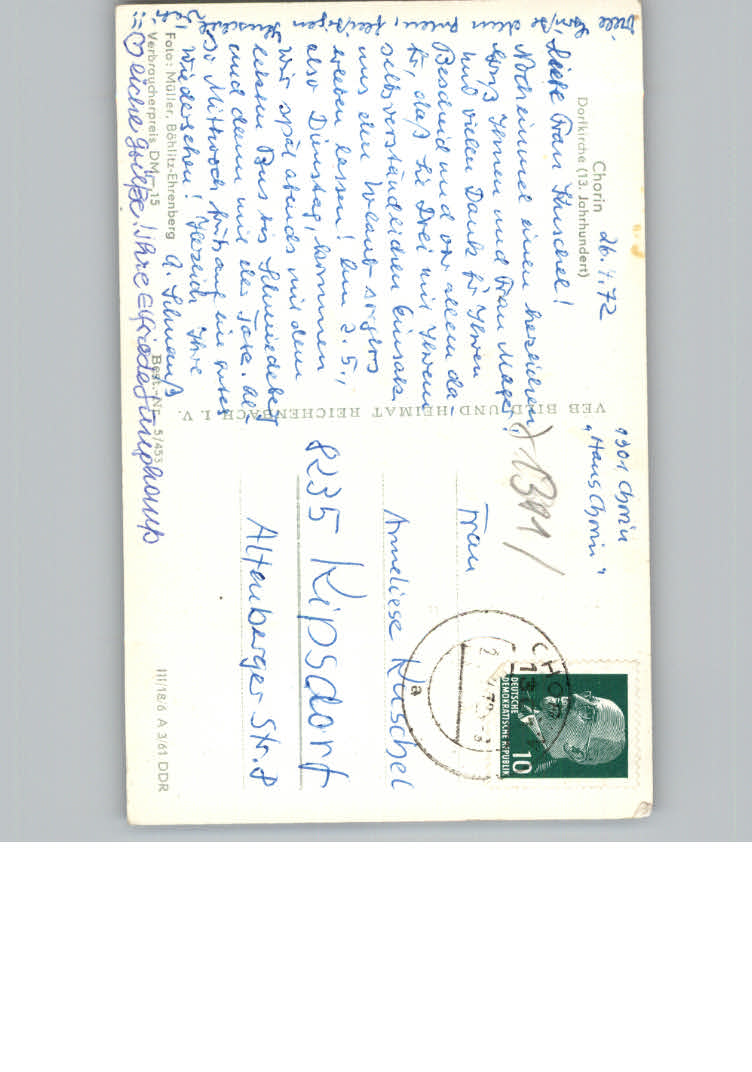 Chorin
Dorfkirche (13. Jahrhundert)
26.4.72
Liebe Frau Kuschel!
Noch einmal einen herzlichen
Gruß Ihnen und Frau
und vielen Dank für Ihren
Bescheid und vor allem da-
für, daß Sie Drei mit Ihrem
selbstverständlichen Einsatz
uns den Urlaub sorglos
erleben lassen! Am 2.5.,
also Dienstag, kommen
wir spät abends mit dem
letzten Bus bis Schmiedeberg
und dann mit der Taxe.
So Mittwoch früh auf ein gutes
Wiedersehen! Herzlich Ihre
A.
Viele Grüße den guten, fleißigen
Foto: Müller, Böhlitz-Ehrenberg
Verbraucherpreis DM –,15
Best.-Nr. 5/453
liche Grüße! Ihre Elfriede
VEB BILD UND HEIMAT REICHENBACH I. V.
1301 Chorin
"Haus Chorin"
1301
Frau
Anneliese Kuschel
8235 Kipsdorf
Altenberger Str. 8
CHORIN
a
DEUTSCHE
DEMOKRATISCHE REPUBLIK
10
III/18/6 A 3/61 DDR